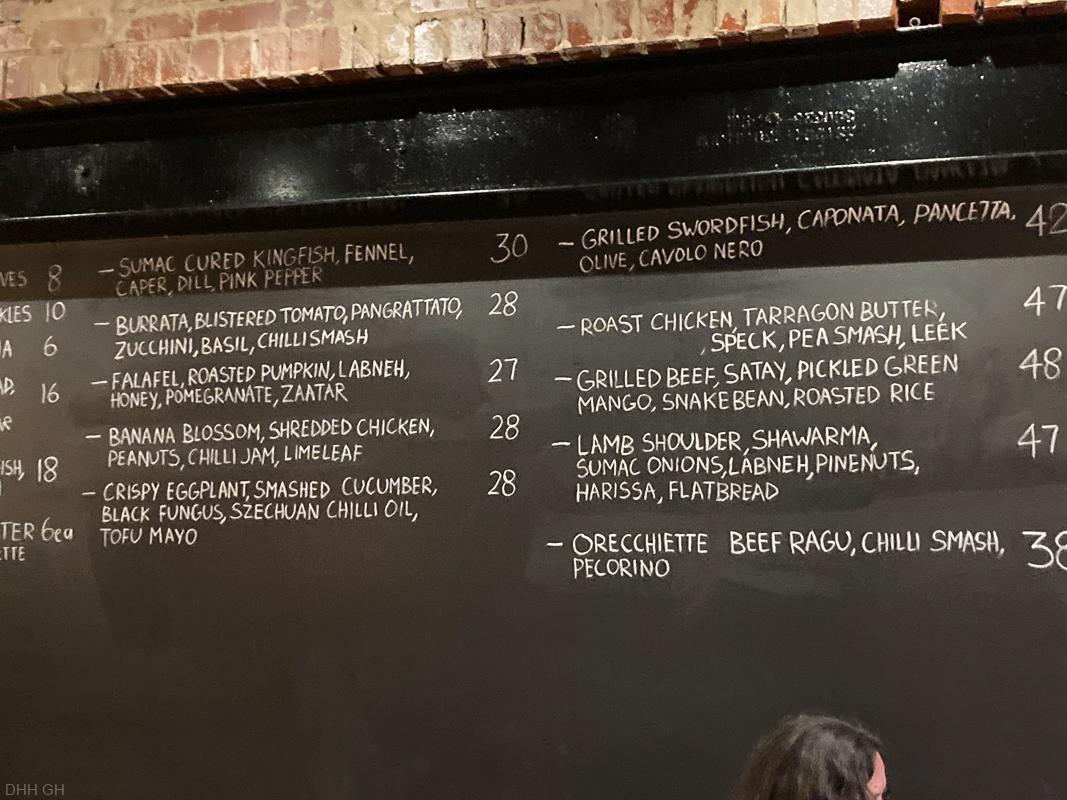 VES 8
KLES 10
A 6
16
ISH, 18
TER 6ea
ETTE
– SUMAC CURED KINGFISH, FENNEL, 30
CAPER, DILL, PINK PEPPER
– BURRATA, BLISTERED TOMATO, PANGRATTATO, 28
ZUCCHINI, BASIL, CHILLI SMASH
– FALAFEL, ROASTED PUMPKIN, LABNEH, 27
HONEY, POMEGRANATE, ZAATAR
– BANANA BLOSSOM, SHREDDED CHICKEN, 28
PEANUTS, CHILLI JAM, LIMELEAF
– CRISPY EGGPLANT, SMASHED CUCUMBER, 28
BLACK FUNGUS, SZECHUAN CHILLI OIL,
TOFU MAYO
– GRILLED SWORDFISH, CAPONATA, PANCETTA, 42
OLIVE, CAVOLO NERO
– ROAST CHICKEN, TARRAGON BUTTER, 47
, SPECK, PEA SMASH, LEEK
– GRILLED BEEF, SATAY, PICKLED GREEN 48
MANGO, SNAKEBEAN, ROASTED RICE
– LAMB SHOULDER, SHAWARMA, 47
SUMAC ONIONS, LABNEH, PINENUTS,
HARISSA, FLATBREAD
– ORECCHIETTE BEEF RAGU, CHILLI SMASH, 38
PECORINO
DHH GH